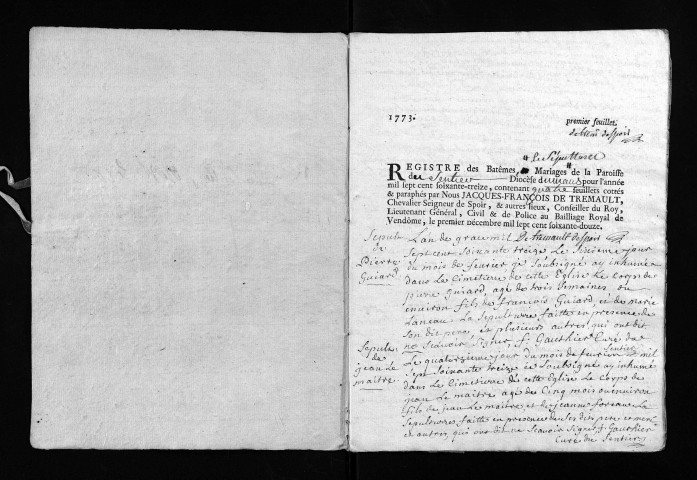 1773.
premier feuillet.
de trem. despoir
REGISTRE des Batêmes, Mariages de la Paroisse
" Et Sepultures "
du Sentier Diocèse du mans pour l'année
mil sept cent soixante-treize, contenant quatre feuillets cottés
& paraphés par Nous JACQUES-FRANÇOIS DE TREMAULT,
Chevalier Seigneur de Spoir, & autres lieux, Conseiller du Roy,
Lieutenant Général, Civil & de Police au Bailliage Royal de
Vendôme, le premier décembre mil sept cent soixante-douze.
De tremault despoir
Sepult
de
Pierre
Guiard
L'an de grace mil
Sept cent Soixante treize Le Sixieme jour
du mois de fevrier je Soubsigné ay inhumé
dans Le Cimetiere de cette Eglise Le Corps de
pierre guiard, agé de trois Semaines ou
environ fils de francois Guiard et de marie
Laneau. La Sepulture faitte en presence de
Son dit pere, et plusieurs autres qui ont dit
ne Scavoir Signer f. Gauthier Curé du
Sentier
Sepult.
de
jean Le
maitre
Le quatorzieme jour du mois de fevrier mil
Sept Soixante treize je Soubsigné ay inhumé
dans Le Cimetiere de cette Eglise Le Corps de
jean Le maitre agé de Cinq mois ou environ
fils de jean Le maitre et de jeanne Le
Sepulture faitte en presence de Ses dits pere et mere
et autres, qui ont dit ne Scavoir Signer f. Gauthier
Curé du Sentier